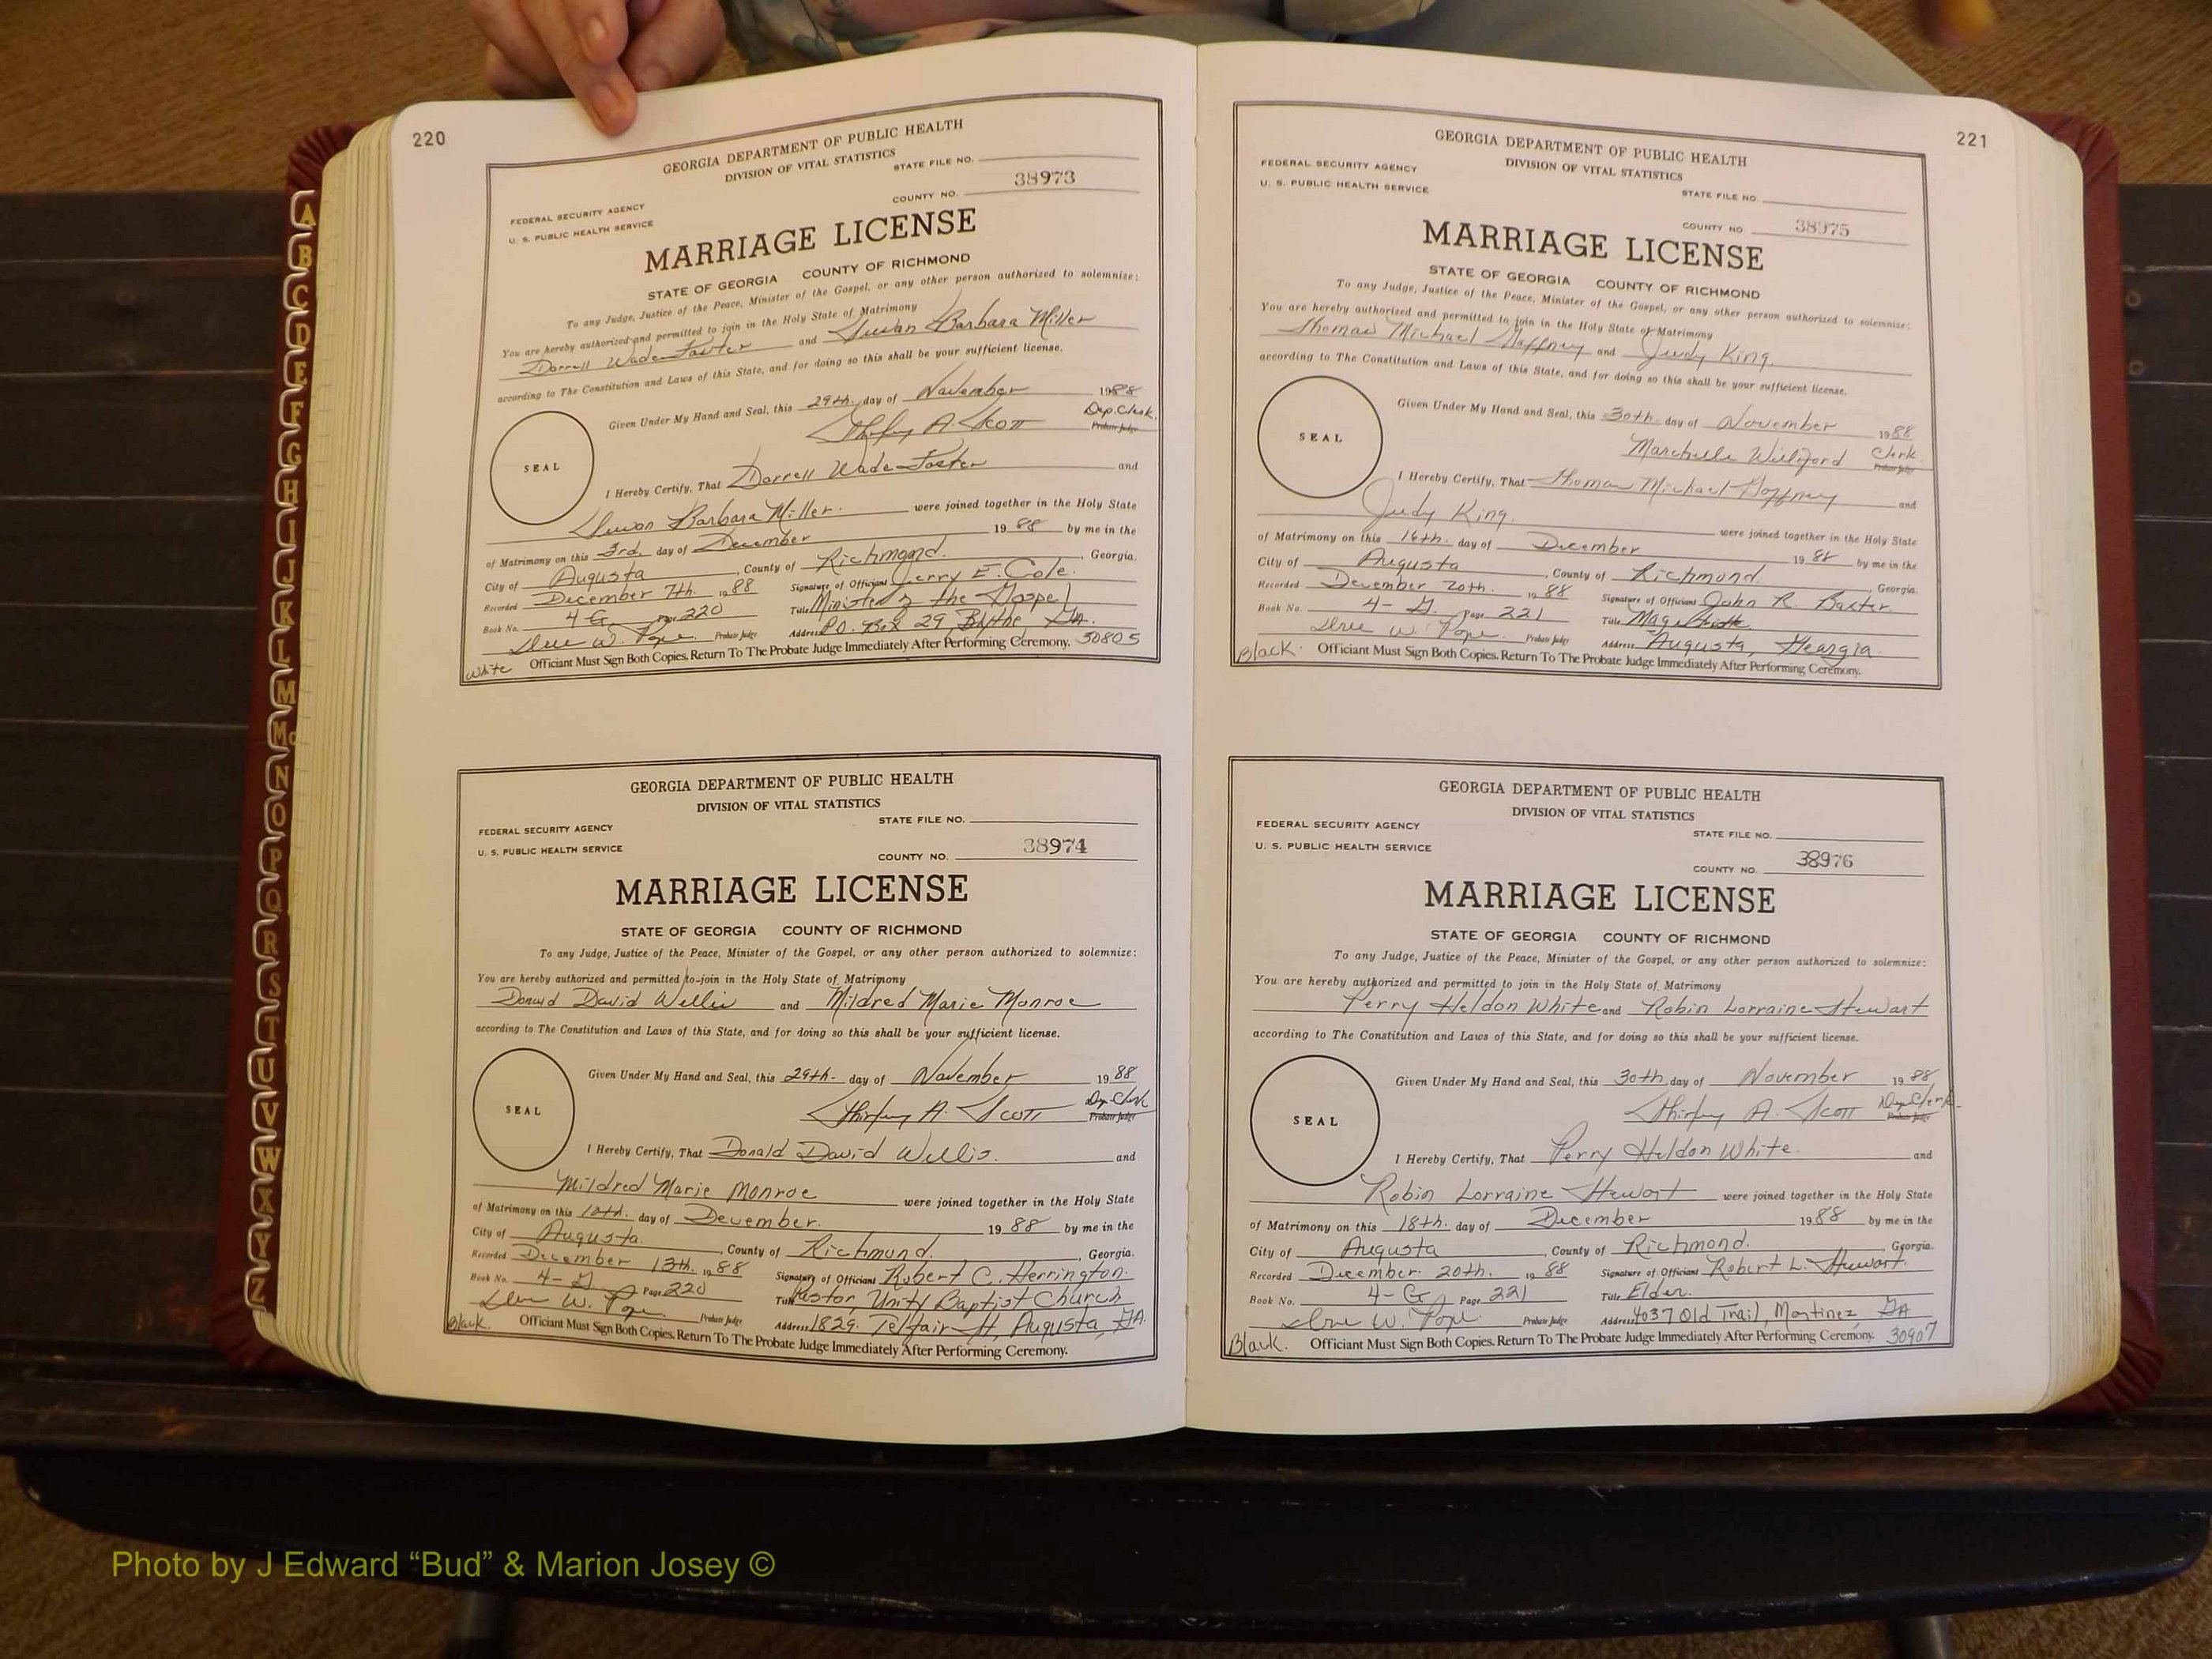 220
GEORGIA DEPARTMENT OF PUBLIC HEALTH
DIVISION OF VITAL STATISTICS
STATE FILE NO.
38973
COUNTY NO.
FEDERAL SECURITY AGENCY
U. S. PUBLIC HEALTH SERVICE
MARRIAGE LICENSE
STATE OF GEORGIA COUNTY OF RICHMOND
To any Judge, Justice of the Peace, Minister of the Gospel, or any other person authorized to solemnize:
You are hereby authorized and permitted to join in the Holy State of Matrimony
Darrell Wade Foster and Susan Barbara Miller
according to The Constitution and Laws of this State, and for doing so this shall be your sufficient license.
Given Under My Hand and Seal, this 29th. day of November 1988
Shirley A. Scott Dep. Clerk Probate Judge
SEAL
I Hereby Certify, That Darrell Wade Foster and
Susan Barbara Miller. were joined together in the Holy State
of Matrimony on this 3rd. day of December 1988 by me in the
City of Augusta, County of Richmond., Georgia.
Recorded December 7th. 1988 Signature of Officiant Jerry E. Cole.
Book No. 4-G Page 220 Title Minister of the Gospel
W. Pope Probate Judge Address P.O. Box 29, Blythe, Ga. 30805
White Officiant Must Sign Both Copies. Return To The Probate Judge Immediately After Performing Ceremony.
GEORGIA DEPARTMENT OF PUBLIC HEALTH
DIVISION OF VITAL STATISTICS
STATE FILE NO.
FEDERAL SECURITY AGENCY
U. S. PUBLIC HEALTH SERVICE
38974
COUNTY NO.
MARRIAGE LICENSE
STATE OF GEORGIA COUNTY OF RICHMOND
To any Judge, Justice of the Peace, Minister of the Gospel, or any other person authorized to solemnize:
You are hereby authorized and permitted to join in the Holy State of Matrimony
Donald David Willis and Mildred Marie Monroe
according to The Constitution and Laws of this State, and for doing so this shall be your sufficient license.
Given Under My Hand and Seal, this 29th. day of November 1988
Shirley A. Scott Dep. Clerk Probate Judge
SEAL
I Hereby Certify, That Donald David Willis. and
Mildred Marie Monroe were joined together in the Holy State
of Matrimony on this 10th. day of December. 1988 by me in the
City of Augusta., County of Richmond., Georgia.
Recorded December 13th. 1988 Signature of Officiant Robert C. Herrington.
Book No. 4-G Page 220 Title Pastor, Unity Baptist Church
W. Pope Probate Judge Address 1829. Telfair St, Augusta, GA.
Black. Officiant Must Sign Both Copies. Return To The Probate Judge Immediately After Performing Ceremony.
221
GEORGIA DEPARTMENT OF PUBLIC HEALTH
DIVISION OF VITAL STATISTICS
FEDERAL SECURITY AGENCY
U. S. PUBLIC HEALTH SERVICE
STATE FILE NO
COUNTY NO 38975
MARRIAGE LICENSE
STATE OF GEORGIA COUNTY OF RICHMOND
To any Judge, Justice of the Peace, Minister of the Gospel, or any other person authorized to solemnize:
You are hereby authorized and permitted to join in the Holy State of Matrimony
Thomas Michael Gaffney and Judy King.
according to The Constitution and Laws of this State, and for doing so this shall be your sufficient license.
Given Under My Hand and Seal, this 30th. day of November 1988
Marchelle Williford Clerk Probate Judge
SEAL
I Hereby Certify, That Thomas Michael Gaffney and
Judy King. were joined together in the Holy State
of Matrimony on this 16th. day of December 1988 by me in the
City of Augusta, County of Richmond, Georgia.
Recorded December 20th. 1988 Signature of Officiant John R. Baxter.
Book No. 4-G. Page 221 Title Magistrate
W. Pope. Probate Judge Address Augusta, Georgia.
Black. Officiant Must Sign Both Copies. Return To The Probate Judge Immediately After Performing Ceremony.
GEORGIA DEPARTMENT OF PUBLIC HEALTH
DIVISION OF VITAL STATISTICS
FEDERAL SECURITY AGENCY
U. S. PUBLIC HEALTH SERVICE
STATE FILE NO.
38976
COUNTY NO
MARRIAGE LICENSE
STATE OF GEORGIA COUNTY OF RICHMOND
To any Judge, Justice of the Peace, Minister of the Gospel, or any other person authorized to solemnize:
You are hereby authorized and permitted to join in the Holy State of Matrimony
Perry Heldon White and Robin Lorraine Stewart
according to The Constitution and Laws of this State, and for doing so this shall be your sufficient license.
Given Under My Hand and Seal, this 30th day of November 1988
Shirley A. Scott Dep. Clerk. Probate Judge
SEAL
I Hereby Certify, That Perry Heldon White. and
Robin Lorraine Stewart were joined together in the Holy State
of Matrimony on this 18th. day of December 1988 by me in the
City of Augusta, County of Richmond. Georgia.
Recorded December. 20th. 1988 Signature of Officiant Robert L. Stewart.
Book No. 4-G Page 221 Title Elder.
W. Pope. Probate Judge Address 4037 Old Trail, Martinez, GA
Black. Officiant Must Sign Both Copies. Return To The Probate Judge Immediately After Performing Ceremony. 30907
A
B
C
D
E
F
G
H
I
J
K
L
M
Mc
N
O
P
Q
R
S
T
U
V
W
X
Y
Z
Photo by J Edward “Bud” & Marion Josey ©